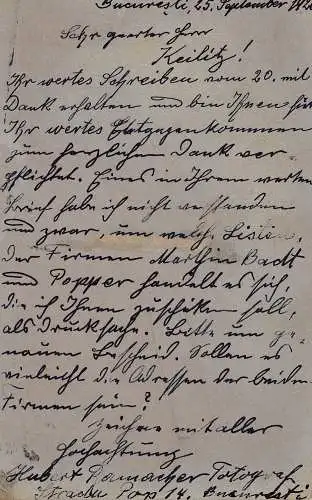 Bucureşti, 25. September 192
Sehr geerter Herr
Keilitz!
Ihr wertes Schreiben vom 20. mit
Dank erhalten und bin Ihnen für
Ihr wertes Entgegenkommen
zum herzlichen Dank ver-
pflichtet. Eines in Ihrem werten
Brief habe ich nicht verstanden
und zwar, um welche Listen,
der Firmen Marthin Badt
und Popper handelt es sich,
die ich Ihnen zuschiken soll,
als Drucksage. Bitte um ge-
nauen Bescheid. Sollen es
vieleicht die Adressen der beiden
Firmen sein?
Zeichne mit aller
Hochachtung
Hubert Ramacher Fotograf
Strada Pop 14. Bucuresti